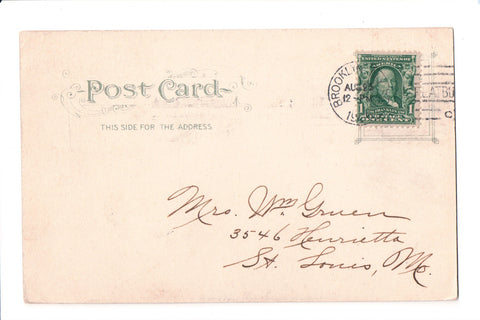 POST CARD
THIS SIDE FOR THE ADDRESS.
BROOKL
AU
12-
19
LATBU
UNITED STATES OF
AMERICA
Mrs. Wm Gruen
3546 Henrietta
St. Louis, Mo.